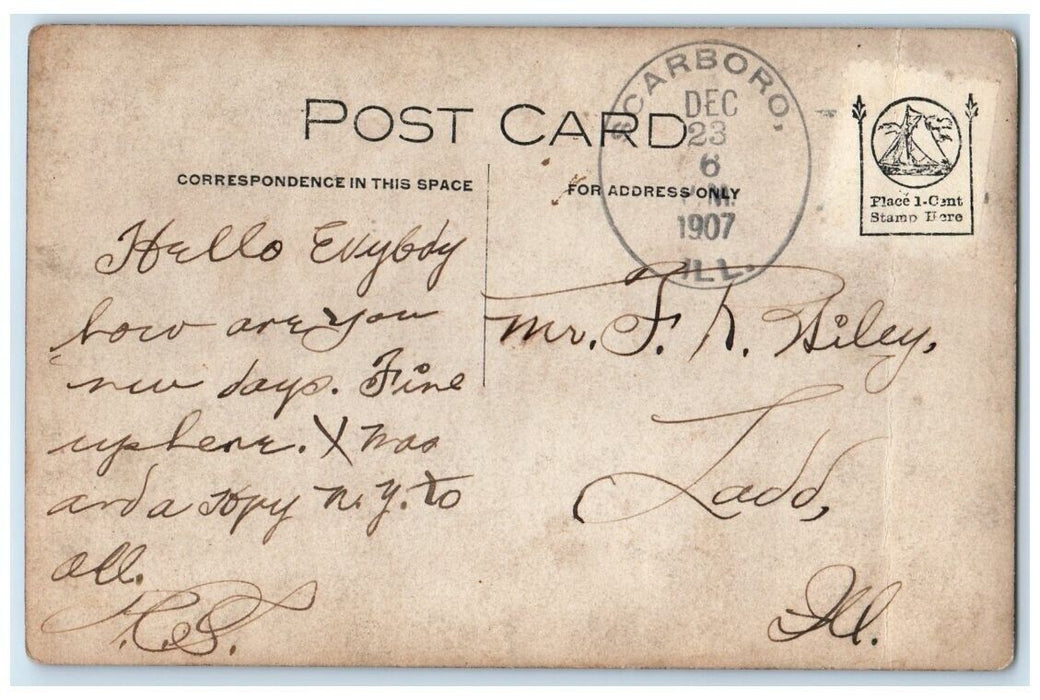 POST CARD
CORRESPONDENCE IN THIS SPACE
FOR ADDRESS ONLY
SCARBORO,
DEC
23
6
M.
1907
ILL.
Place 1-Cent
Stamp Here
Hello Evybody
how are you
new days. Fine
up here. X mas
and a Hpy N. Y. to
all.
Mr. F. K. Wiley,
Ladd,
Ill.